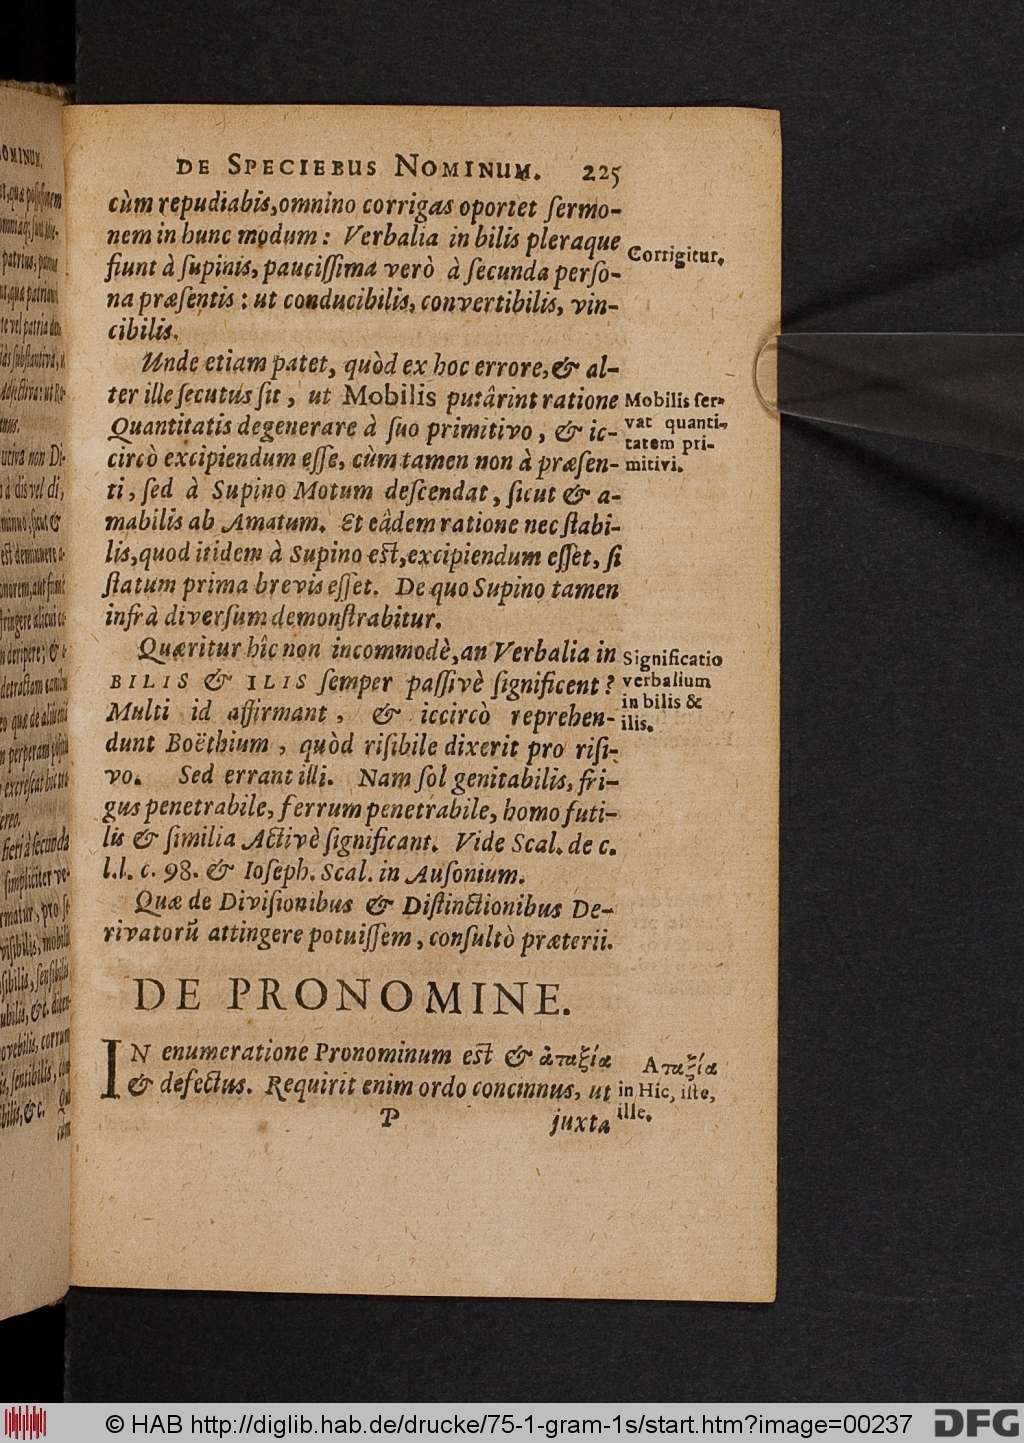 DE SPECIEBUS NOMINUM. 225
cùm repudiabis, omnino corrigas oportet ſermo-
nem in hunc modum: Verbalia in bilis pleraque
fiunt à ſupinis, pauciſſima verò à ſecunda perſo-
na præſentis: ut conducibilis, convertibilis, vin-
cibilis.
Corrigitur.
Unde etiam patet, quòd ex hoc errore, & al-
ter ille ſecutus ſit, ut Mobilis putârint ratione
Quantitatis degenerare à ſuo primitivo, & ic-
circò excipiendum eſſe, cùm tamen non à præſen-
ti, ſed à Supino Motum deſcendat, ſicut & a-
mabilis ab Amatum. Et eâdem ratione nec ſtabi-
lis, quod itidem à Supino est, excipiendum eſſet, ſi
ſtatum prima brevis eſſet. De quo Supino tamen
infrà diverſum demonſtrabitur.
Mobilis ſer-
vat quanti-
tatem pri-
mitivi.
Quæritur hîc non incommodè, an Verbalia in
BILIS & ILIS ſemper paſſivè ſignificent?
Multi id affirmant, & iccircò reprehen-
dunt Boëthium, quòd riſibile dixerit pro riſi-
vo. Sed errant illi. Nam ſol genitabilis, fri-
gus penetrabile, ferrum penetrabile, homo futi-
lis & ſimilia Activè ſignificant. Vide Scal. de c.
l.l. c. 98. & Ioſeph. Scal. in Auſonium.
Significatio
verbalium
in bilis &
ilis.
Quæ de Diviſionibus & Diſtinctionibus De-
rivatorũ attingere potuiſſem, conſultò præterii.
DE PRONOMINE.
IN enumeratione Pronominum est & ἀταξία
& defectus. Requirit enim ordo concinnus, ut
Αταξία
in Hic, iſte,
ille.
P juxta
© HAB http://diglib.hab.de/drucke/75-1-gram-1s/start.htm?image=00237
DFG